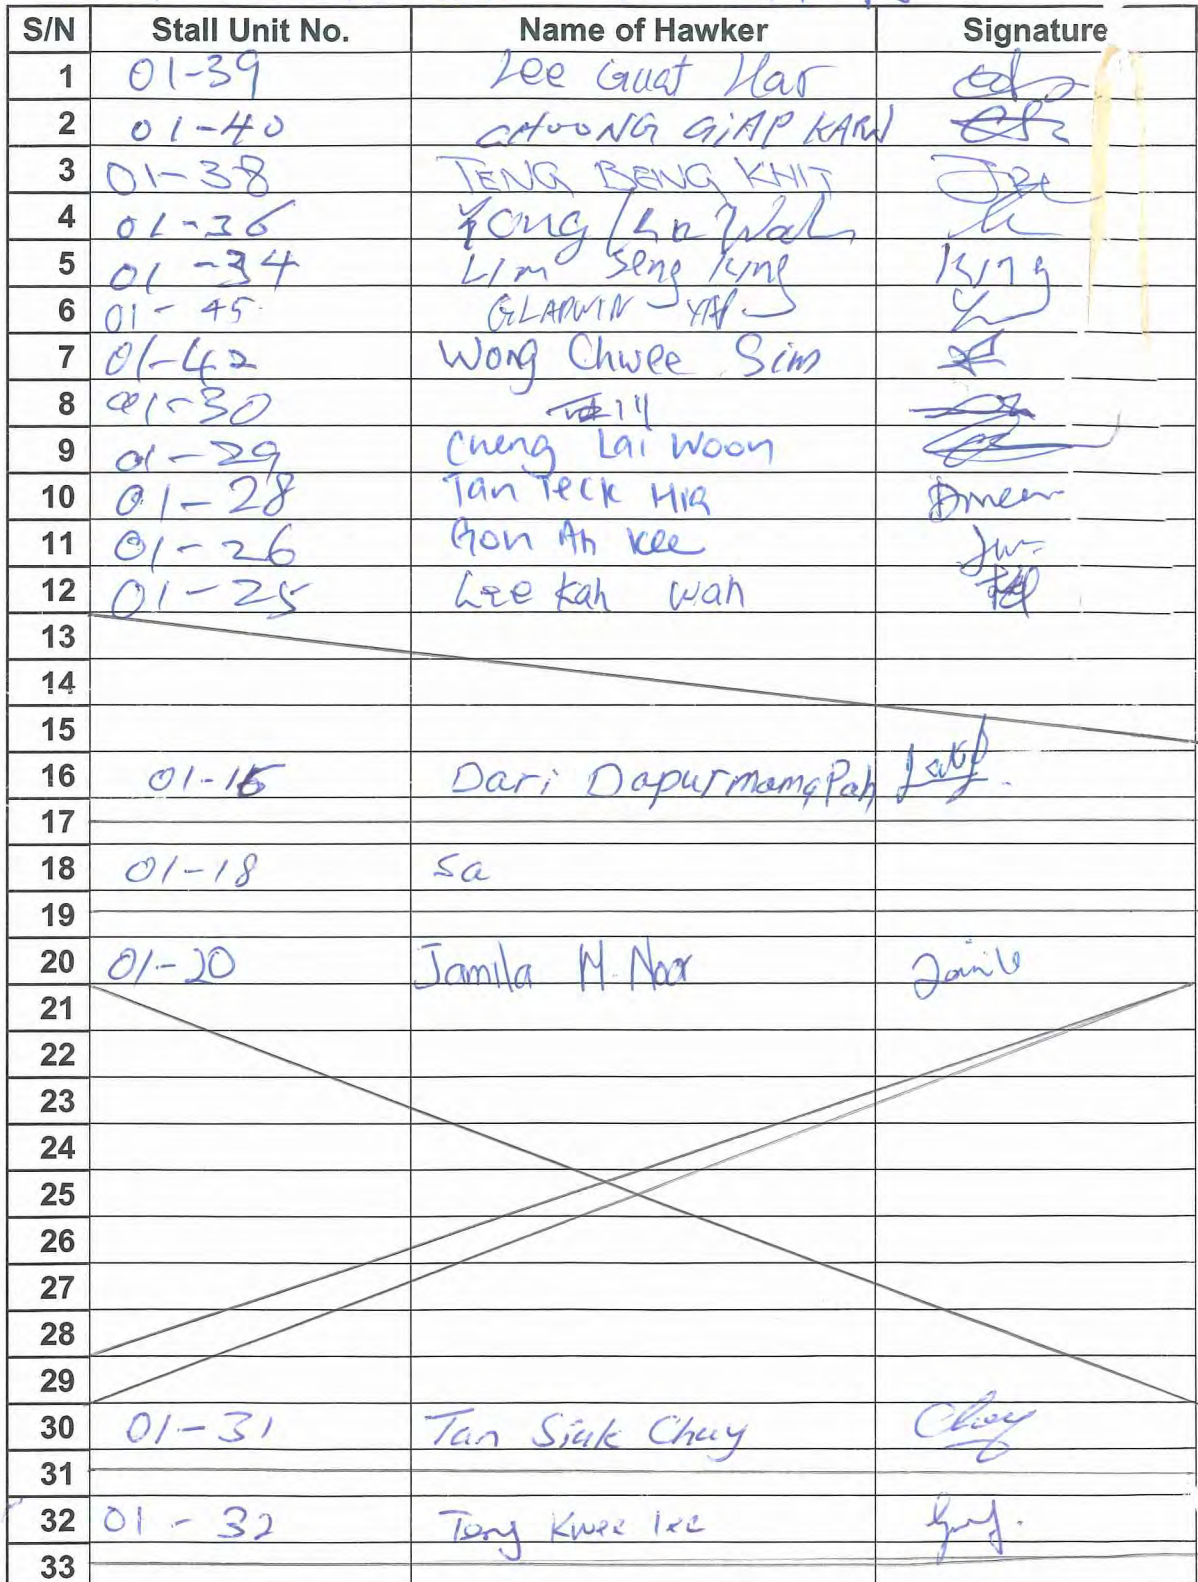 S/N Stall Unit No. Name of Hawker Signature
1 01-39 Lee Guat Har
2 01-40 CHOONG GIAP KARN
3 01-38 TENG BENG KHIT
4 01-36 Yong Wah
5 01-34 Lim Seng King King
6 01-45 GLADWIN YAP
7 01-42 Wong Chwee Sim
8 01-30
9 01-29 Cheng Lai Woon
10 01-28 Tan Teck Hia
11 01-26 Ah Kee
12 01-25 Lee Kah Wah
13
14
15
16 01-16 Dari Dapurmama Pah
17
18 01-18 Sa
19
20 01-20 Jamila M. Noor
21
22
23
24
25
26
27
28
29
30 01-31 Tan Siak Chuy
31
32 01-32 Tong Kwee lee
33